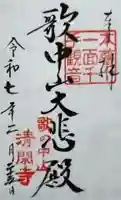 奉拝
本尊
一面千
観音
歌中山大悲殿
歌の中山
清閑寺
令和七年二月